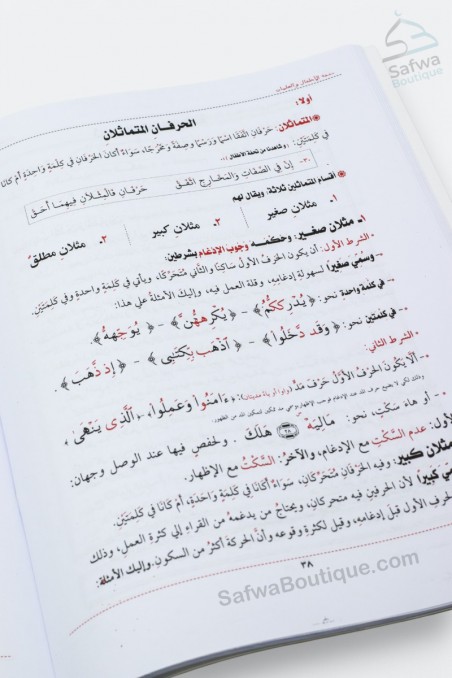 Safwa
Boutique
أولا:
الحرفان المتماثلان
المتماثلان: حَرْفَانِ اتَّفَقَا اسْمًا وَرَسْمًا وصِفَةً وَمَخْرَجًا، سَوَاءٌ أَكَانَ الحَرْفَانِ في كَلِمَةٍ وَاحِدَةٍ أَمْ كَانَا
في كَلِمَتَيْنِ،
٣٠- إنْ في الصِّفَاتِ وَالمَخَارِجِ اتَّفَقْ حَرْفَانِ فَالْمِثْلَانِ فِيهِمَا أَحَقْ
أقسام المتماثلين ثلاثة ويقال لهم
١. مثلانِ صغير ٢. مثلانِ كبير ٣. مثلانِ مطلقٌ
١ـ مثلان صغير: وحكمه وجوب الإدغام بشرطين:
الشرط الأول: أن يكون الحرفُ الأولُ ساكنًا والثَّاني مُتَحَرِّكًا، ويأتي في كَلِمَةٍ واحدةٍ وفي كَلِمَتَيْنِ.
- وسُمِّيَ صغيراً لسهولةِ إدغامِهِ، وقلة العمل فيه، وإليك الأمثلةُ على هذا:
- في كلمة واحدة نحو: ﴿يُدْرِككُّمُ﴾ - ﴿يُكْرِههُّنَّ﴾ - ﴿يُوَجِّههُّ﴾.
- في كلمتين نحو: ﴿وَقَد دَّخَلُوا۟﴾ - ﴿ٱذْهَب بِّكِتَٰبِى﴾ - ﴿إِذ ذَّهَبَ﴾.
الشرط الثاني:
- ألَّا يَكُونَ الحَرْفُ الأَوَّلُ حَرْفَ مَدٍّ (واوا أو ياءً مديتان) ﴿ءَامَنُوا۟ وَعَمِلُوا۟﴾، ﴿ٱلَّذِى يَنْهَىٰ﴾
- أو هاءَ سكْتٍ، نحو: مَالِيَهْ ۜ ٢٨ هَلَكَ. ولحفصٍ فيها عند الوصل وجهان:
الأول: عدم السَّكْتِ مع الإدغام، والآخر: السَّكْتُ مع الإظهار.
مثلان كبير: وفيه الحَرْفَانِ مُتَحَرِّكَانِ، سَوَاءٌ أكَانَا في كَلِمَةٍ وَاحَدَةٍ، أَمْ كَانَا في كَلِمَتَيْنِ.
سمِّيَ كَبِيراً) لأن الحرفين فيه متحركان، ويحتاجُ من يدغمهُ من القراءِ إلى كثرةِ العملِ، وذلك
الحرف الأول قبلَ إدغامِهِ، وقيل لكثرةِ وقوعه وأنَّ الحركة أكثرُ من السكون. وإليك الأمثلة:
٣٨
SafwaBoutique.com